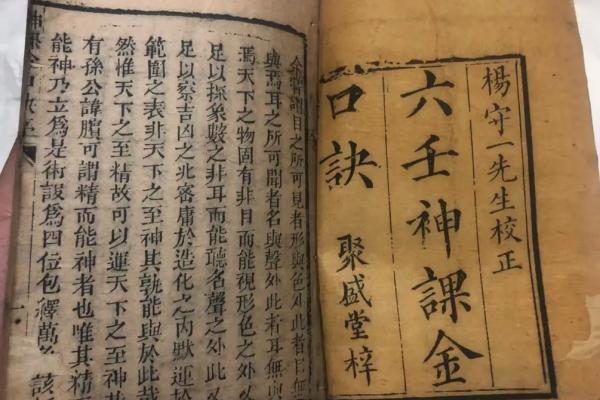 楊守一先生校正
六壬神課金
口訣
聚盛堂梓
余嘗謂目之所可見者形與色外此者目無
與焉耳之所可聞者名與聲外此者耳無與
焉天下之物固有非目而能視形色之外
足以探象數之非耳而能聽名聲之外此
足以察吉凶之兆審庸於造化之内默運於
範圍之表非天下之至神其孰能與於此哉
然惟天下之至精故可以運天下之至神
有孫公諱臏可謂精而能神者也唯其精
能神乃立爲是術設爲四位包繹萬 該
神課金口訣